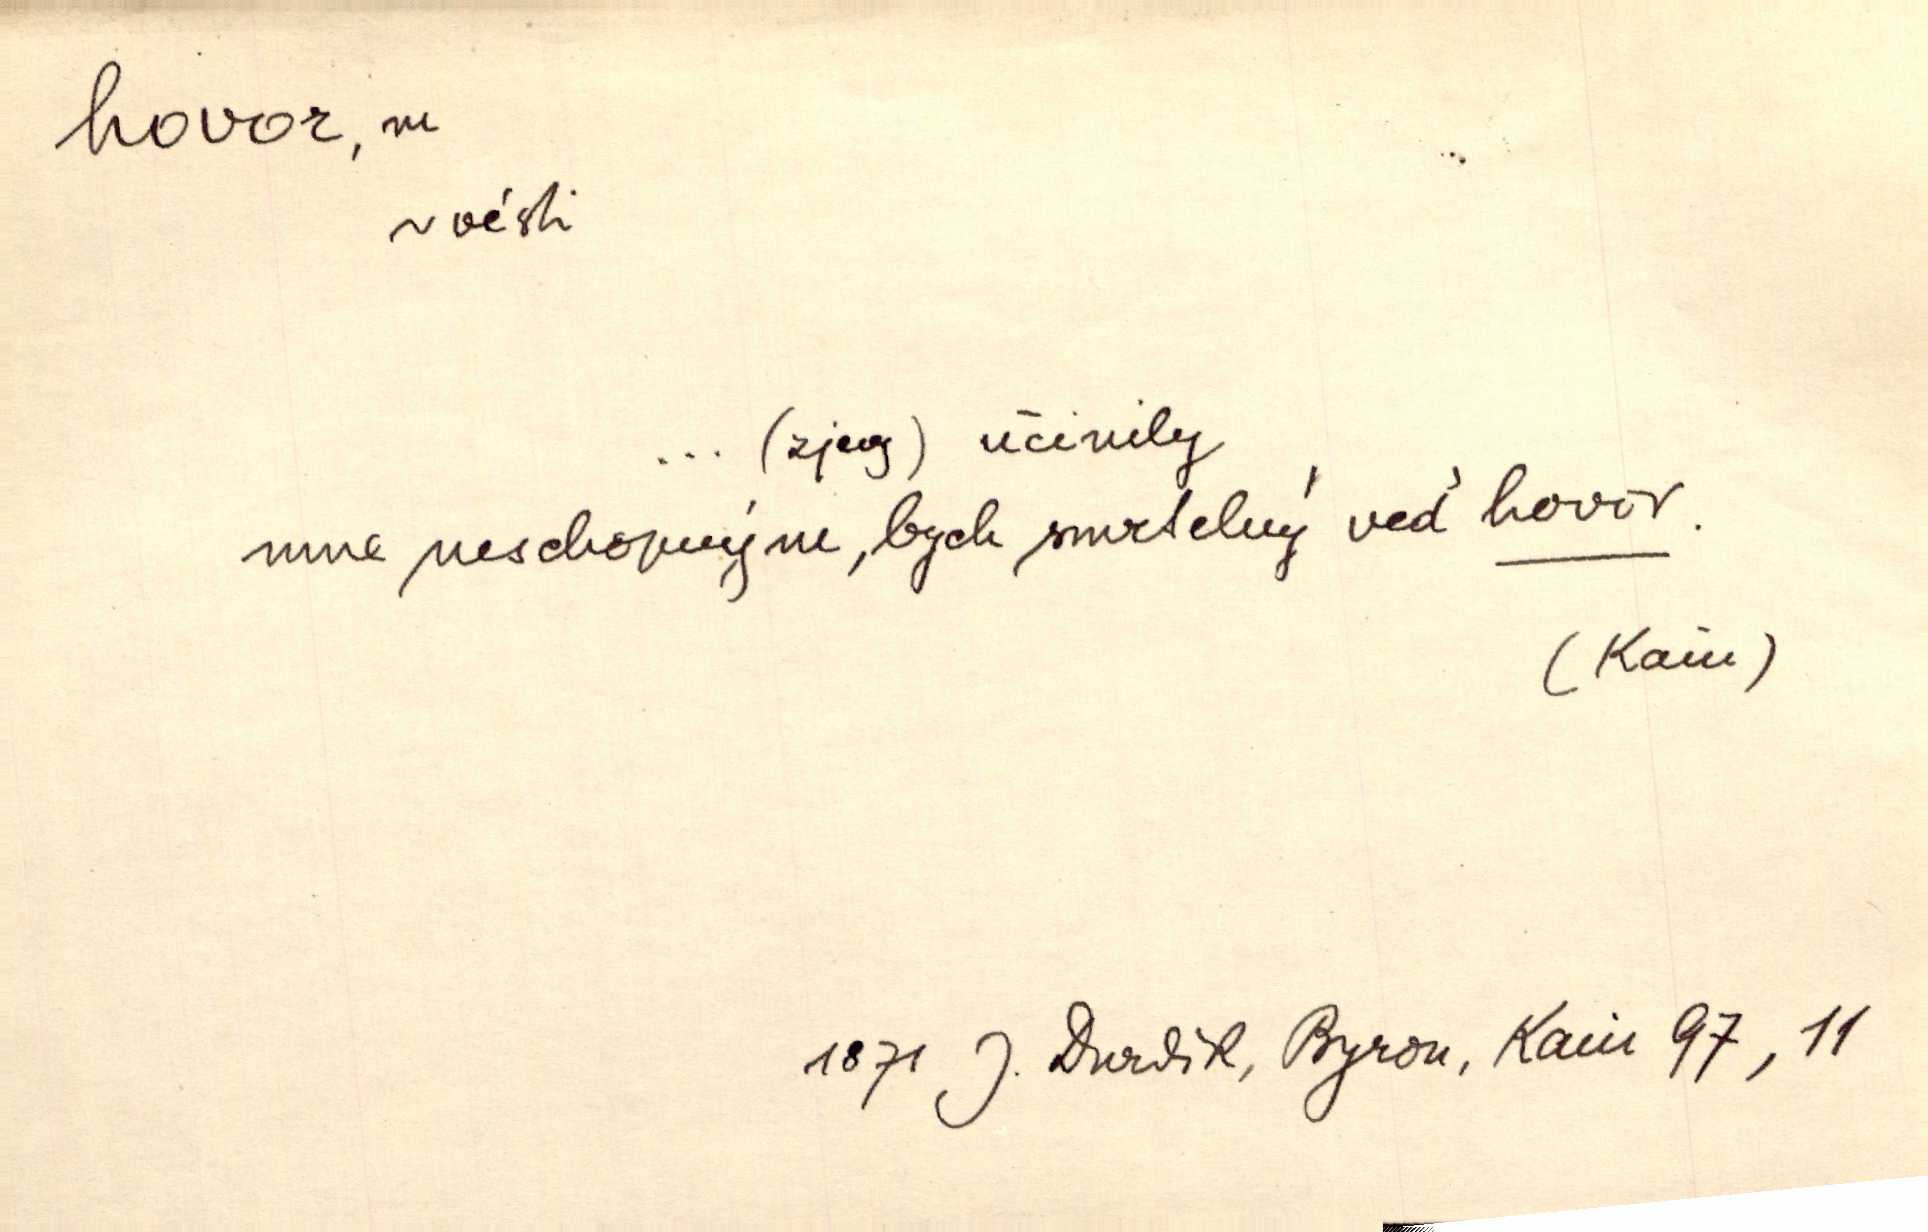 hovor, m
v vésti
... (zjevy) učinily
mne neschopným, bych smrtelný ved' hovor.
(Kain)
1871 J. Durdík, Byron, Kain 97, 11